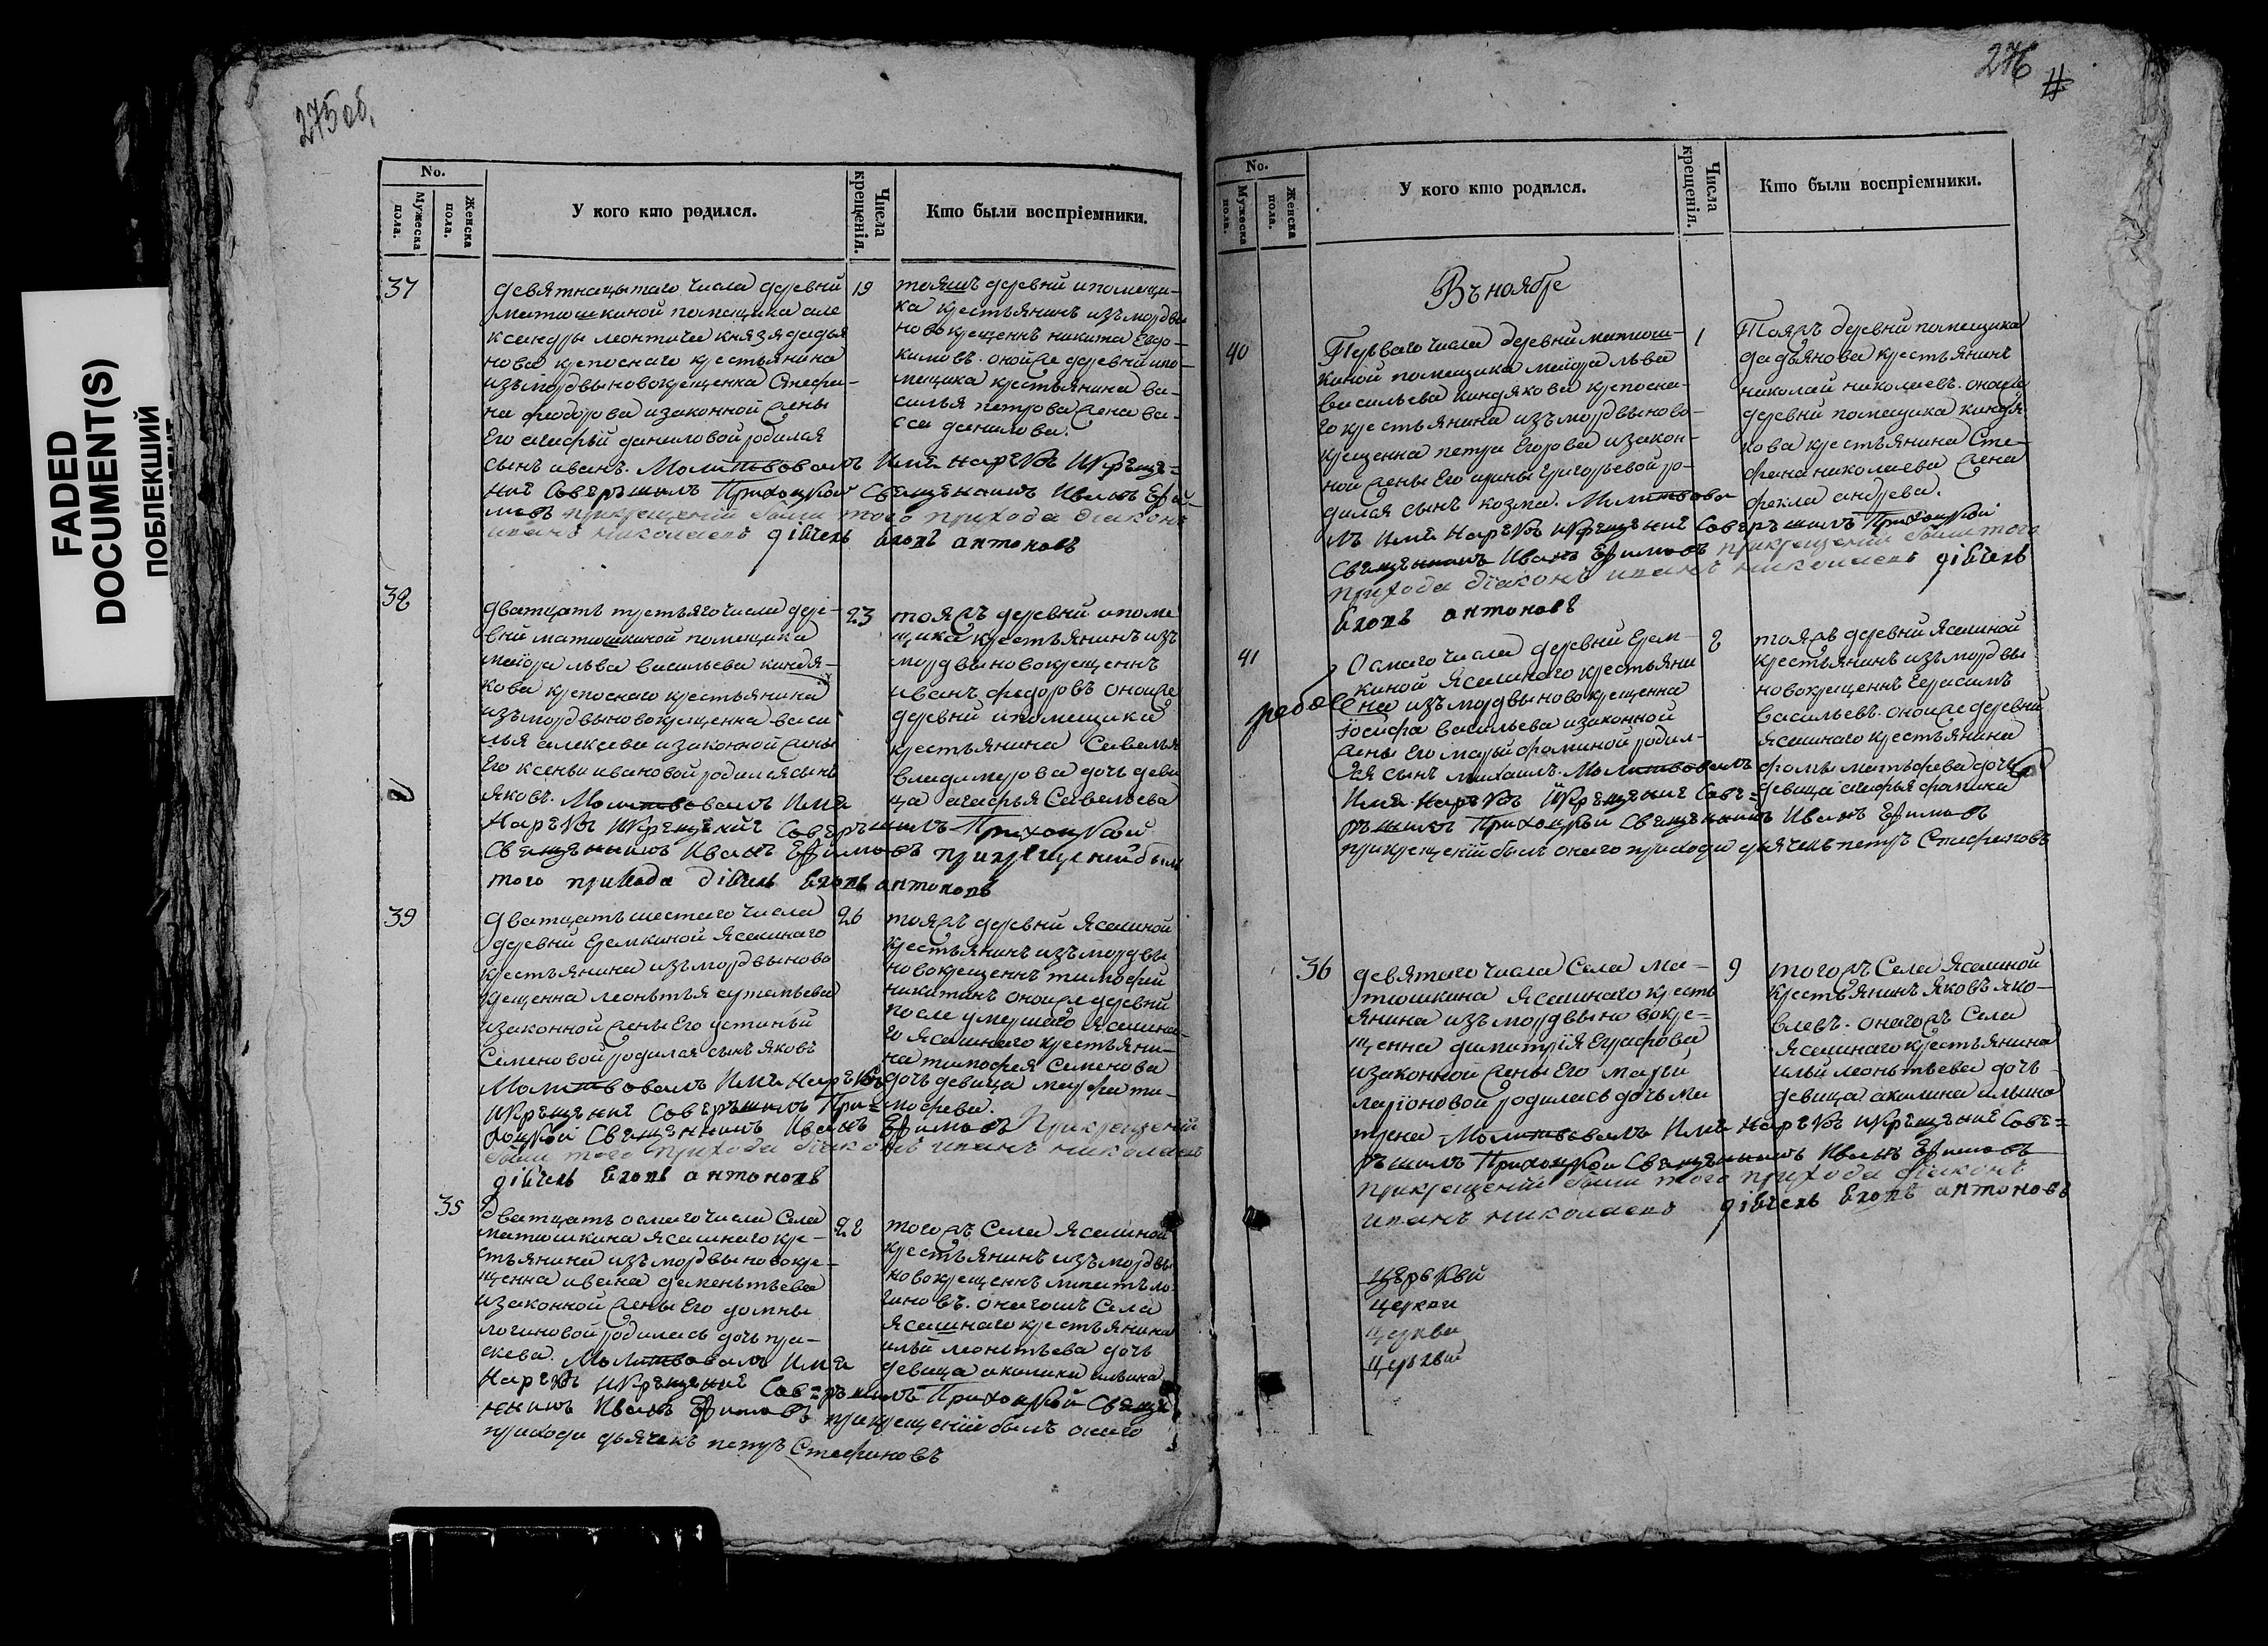 FADED
DOCUMENT(S)
ПОБЛЕКШИЙ
275 об.
No.
Мужеска пола.
Женска пола.
У кого кто родился.
Числа крещенія.
Кто были воспріемники.
37
девятнацытаго числа деревни
матюшкиной помещика але
ксандры леонтича князя дадья
нова крепоснаго крестьянина
изъ мордвы новокрещенна Стефа-
на феодорова и законной жены
Его агафьи даниловой родился
сынъ иванъ. Молитвовалъ Имя Нареклъ И Креще-
ние Соверъшилъ Приходской Священникъ Иванъ Ефи-
мовъ прикрещении были того прихода діаконъ
иванъ николаевъ дьячекъ Егоръ антоновъ
19
тояжъ деревни и помещи-
ка крестьянинъ изъ мордвы
новокрещеннъ никита Евдо-
кимовъ. оной же деревни и по-
мещика крестьянина ва-
силья петрова жена ва-
са данилова.
38
дватцать третьяго числа дере-
вни матюшкиной помещика
маіора льва васильева киндя-
кова крепоснаго крестьянина
изъ мордвы новокрещенна васи
лья алексеева и законной жены
Его ксеньи ивановой родился сынъ
яковъ. Молитвовалъ Имя
Нареклъ И Крещение Соверъшилъ Приходской
Священникъ Иванъ Ефимовъ прикрещении были
того прихода дьячекъ Егоръ антоновъ
23
тояжъ деревни и поме
щика крестьянинъ изъ
мордвы новокрещеннъ
иванъ федоровъ оной же
деревни и помещика
крестьянина Савелья
владимерова дочь деви
ца агафья Савельева
39
дватцать шестаго числа
деревни Еремкиной ясашнаго
крестьянина изъ мордвы ново
крещенна леонтья артемьева
и законной жены Его устиньи
Семеновой родился сынъ яковъ
Молитвовалъ Имя Нареклъ
И Крещение Соверъшилъ При-
ходской Священникъ Иванъ Ефимовъ прикрещении
были того прихода діаконъ иванъ николаевъ
дьячекъ Егоръ антоновъ
26
тояжъ деревни ясашной
крестьянинъ изъ мордвы
новокрещеннъ тимофей
никитинъ оной же деревни
после умершаго ясашна-
го ясашнаго крестьяни-
на тимофея Семенова
дочь девица марфа ти-
мофеева.
35
дватцать осмаго числа Села
матюшкина ясашнаго кре-
стьянина изъ мордвы новокре-
щенна ивана дементьева
и законной жены Его домны
логиновой родилась дочь пра-
скева. Молитвовалъ Имя
Нареклъ И Крещение Соверъшилъ Приходской Свяще
нникъ Иванъ Ефимовъ прикрещении былъ онаго
прихода дьячекъ петръ Стефановъ
28
тогожъ Села ясашной
крестьянинъ изъ мордвы
новокрещеннъ никита ло-
гиновъ. онагожъ Села
ясашнаго крестьянина
ильи леонтьева дочь
девица акилина ильина
276
No.
Мужеска пола.
Женска пола.
У кого кто родился.
Числа крещенія.
Кто были воспріемники.
Въ ноябре
40
Перваго числа деревни матюш-
киной помещика маіора льва
васильева киндякова крепосна-
го крестьянина изъ мордвы ново-
крещенна петра Егорова и закон-
ной жены Его ирины григорьевой ро-
дился сынъ козма. Молитвова
лъ Имя Нареклъ И Крещение Соверъшилъ Приходской
Священникъ Иванъ Ефимовъ прикрещении были того
прихода діаконъ иванъ николаевъ дьячекъ
Егоръ антоновъ
1
Тояжъ деревни помещика
дадьянова крестьянинъ
николай николаевъ. оной же
деревни помещика киндя
кова крестьянина Сте-
фана николаева жена
фекла андреева.
41
Осмаго числа деревни Ерем-
киной ясашнаго крестьяни
на изъ мордвы новокрещенна
іосифа васильева и законной
жены Его марьи фоминой родил-
ся сынъ михаилъ. Молитвовалъ
Имя Нареклъ И Крещение Сове-
ръшилъ Приходской Священникъ Иванъ Ефимовъ
прикрещении былъ онаго прихода дьячекъ петръ Стефановъ
8
тояжъ деревни ясашной
крестьянинъ изъ мордвы
новокрещеннъ герасимъ
васильевъ. оной же деревни
ясашнаго крестьянина
фомы матвеева дочь
девица агафья фомина
36
девятаго числа Села ма-
тюшкина ясашнаго кресть
янина изъ мордвы новокре-
щенна димитрія Ерафова
и законной жены Его марьи
ларіоновой родилась дочь ма
трена Молитвовалъ Имя Нареклъ И Крещение Сове-
ръшилъ Приходской Священникъ Иванъ Ефимовъ
прикрещении были того прихода діаконъ
иванъ николаевъ дьячекъ Егоръ антоновъ
9
тогожъ Села ясашной
крестьянинъ яковъ яко-
влевъ. онагожъ Села
ясашнаго крестьянина
ильи леонтьева дочь
девица акилина ильина
церькви
церкви
церкви
церкви